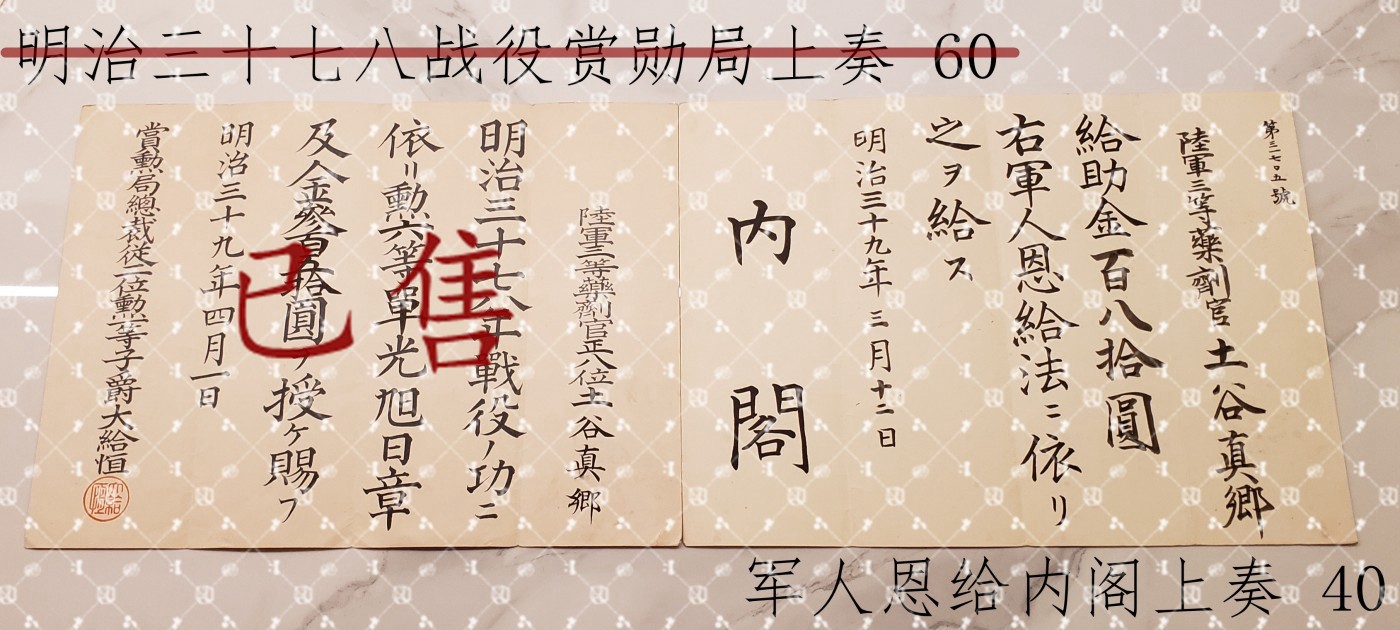 明治三十七八战役赏勋局上奏 60
第三七〇五號
陸軍三等藥劑官 土谷真鄉
給助金百八拾圓
右軍人恩給法ニ依リ
之ヲ給ス
明治三十九年三月十二日
内閣
陸軍三等藥劑官正八位土谷真鄉
明治三十七八年戰役ノ功ニ
依リ勲六等單光旭日章
及金參百拾圓ヲ授ケ賜フ
明治三十九年四月一日
賞勲局總裁從二位勲一等子爵大給恒
已售
军人恩给内阁上奏 40